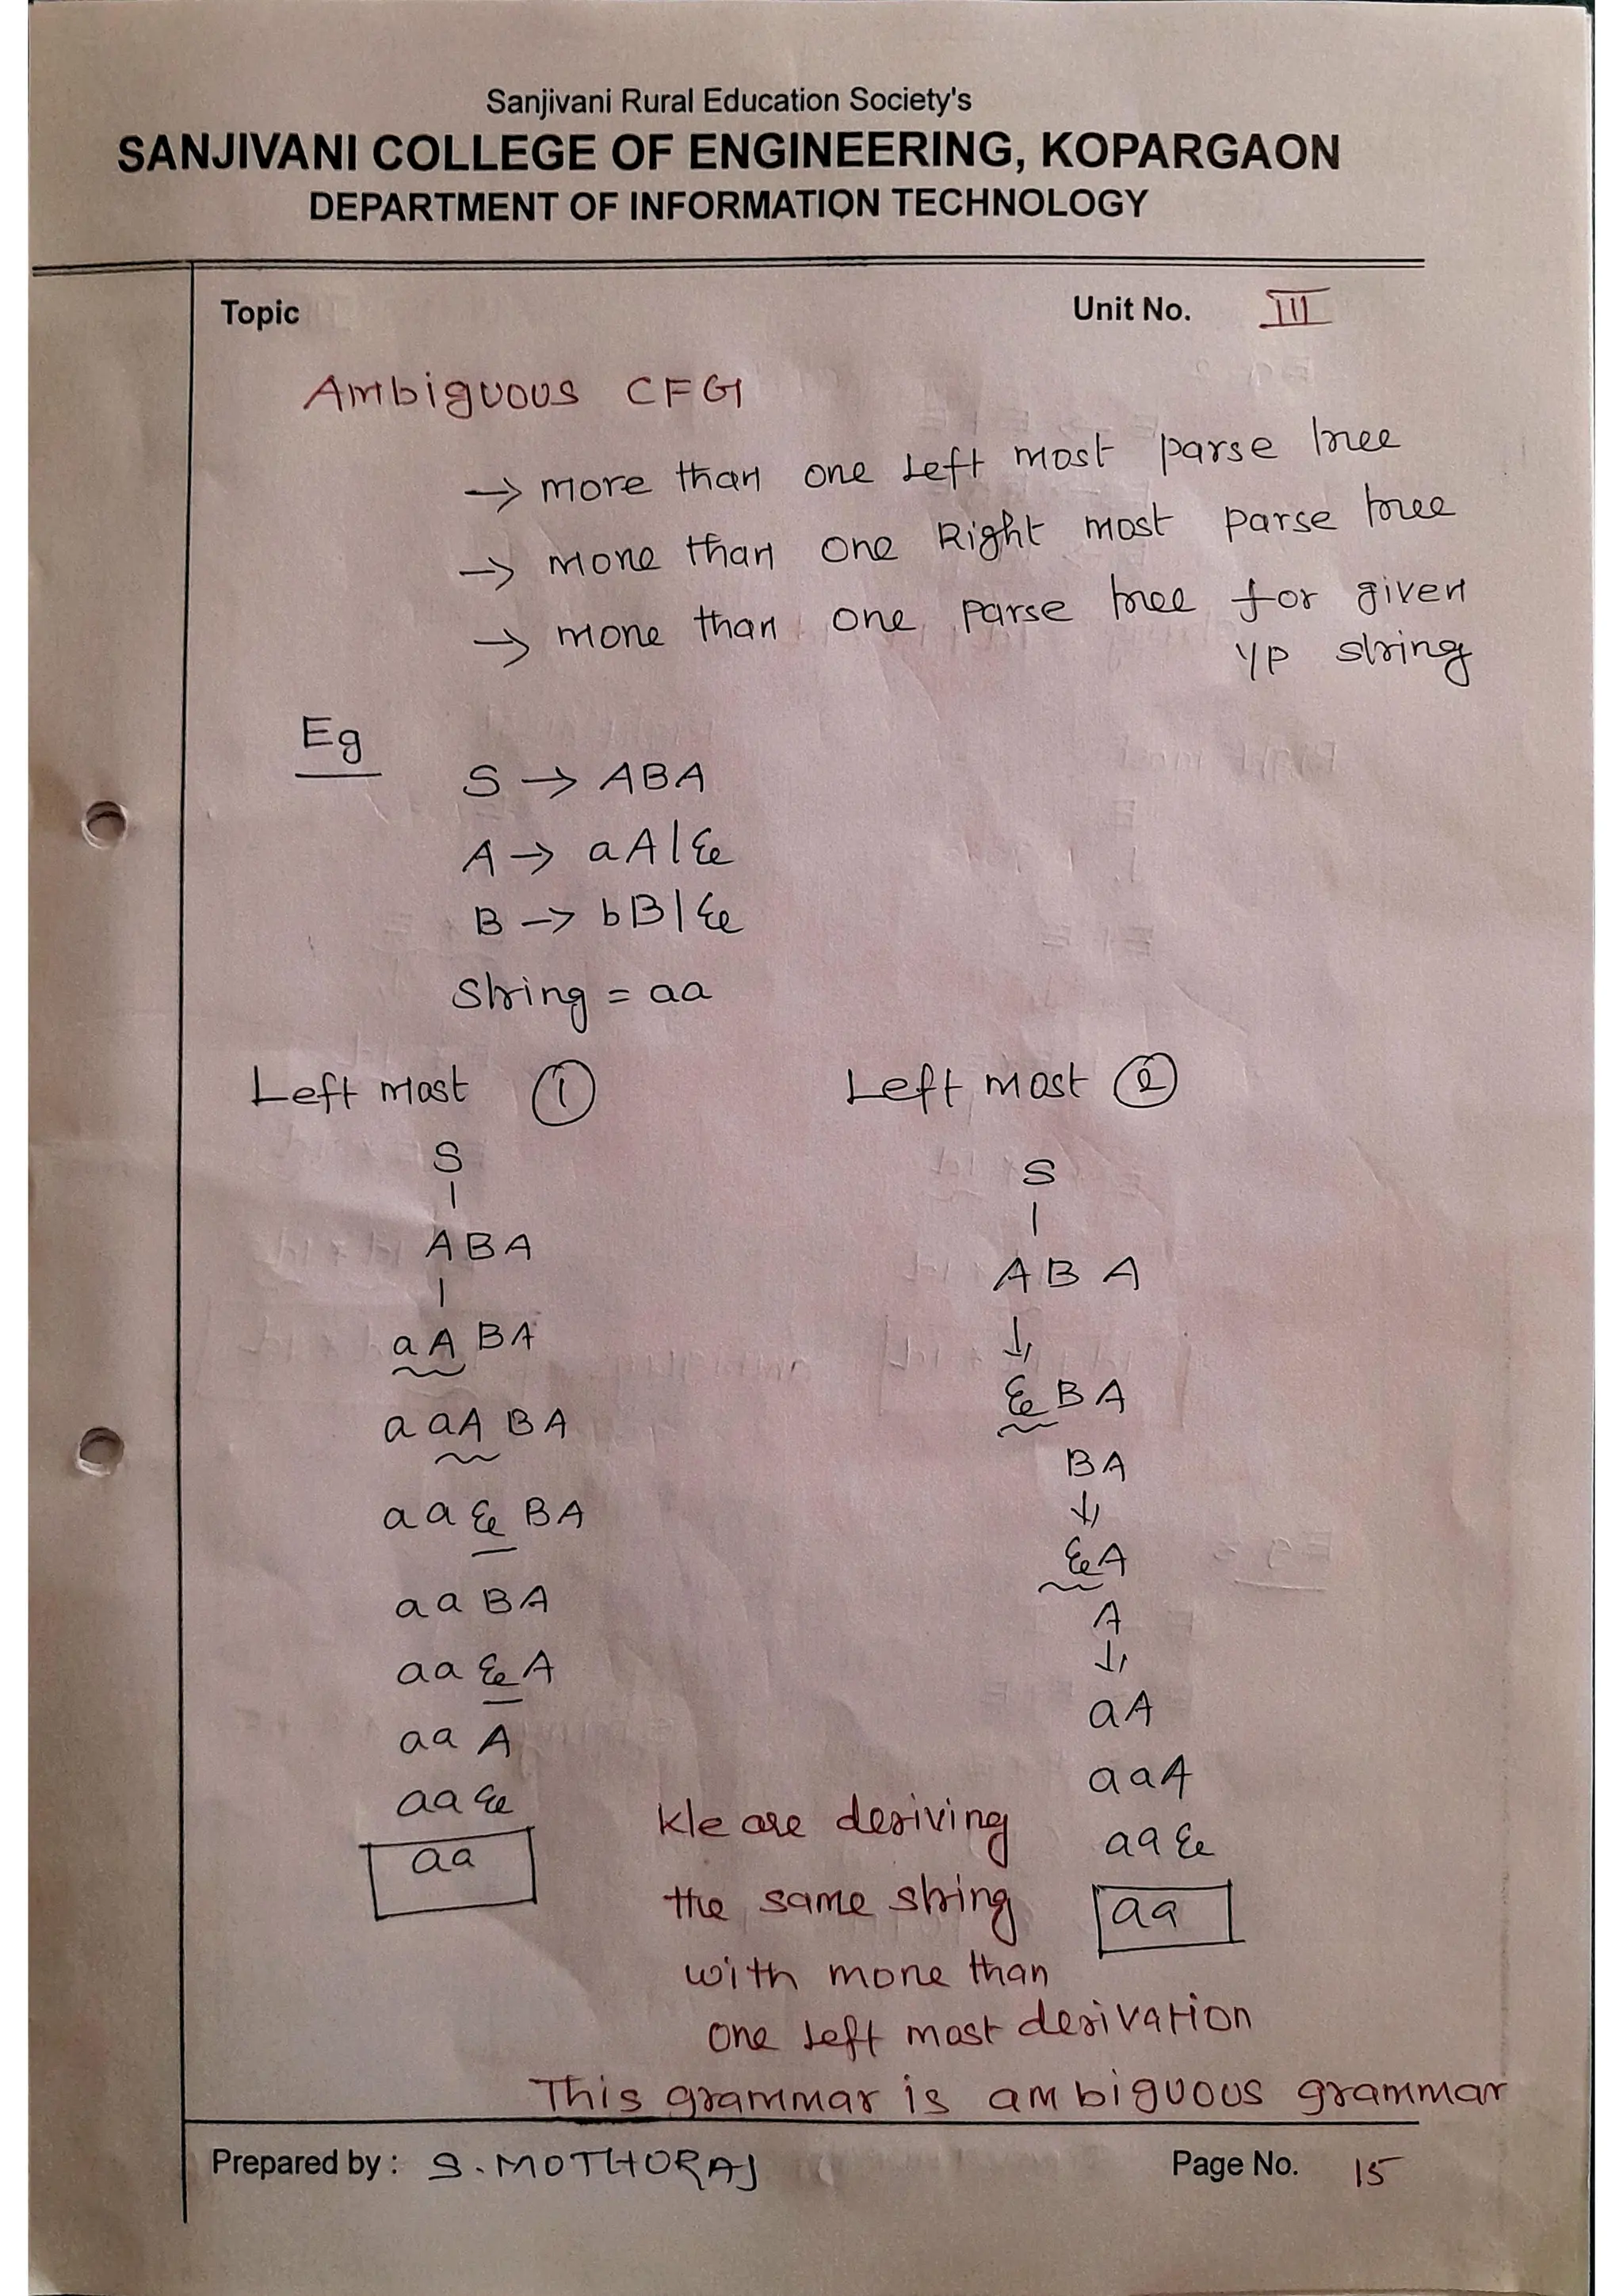 Sanjivani Rural Education Society's
SANJIVANI COLLEGE OF ENGINEERING, KOPARGAON
DEPARTMENT OF INFORMATION TECHNOLOGY
Topic
Unit No. III
Ambiguous CFG
→ more than one Left most parse tree
→ more than one Right most parse tree
→ more than one parse tree for given
i/p string
Eg
S → ABA
A → aA|ε
B → bB|ε
String = aa
Left most ①
S
|
ABA
|
aA BA
a aA BA
a a ε BA
a a BA
aa ε A
aa A
aa ε
aa
Left most ②
S
|
A B A
↓
ε B A
BA
↓
εA
A
↓
aA
aaA
aa ε
aa
We are deriving
the same string
with more than
one left most derivation
This grammar is ambiguous grammar
Prepared by : S. MUTHURAJ
Page No. 15